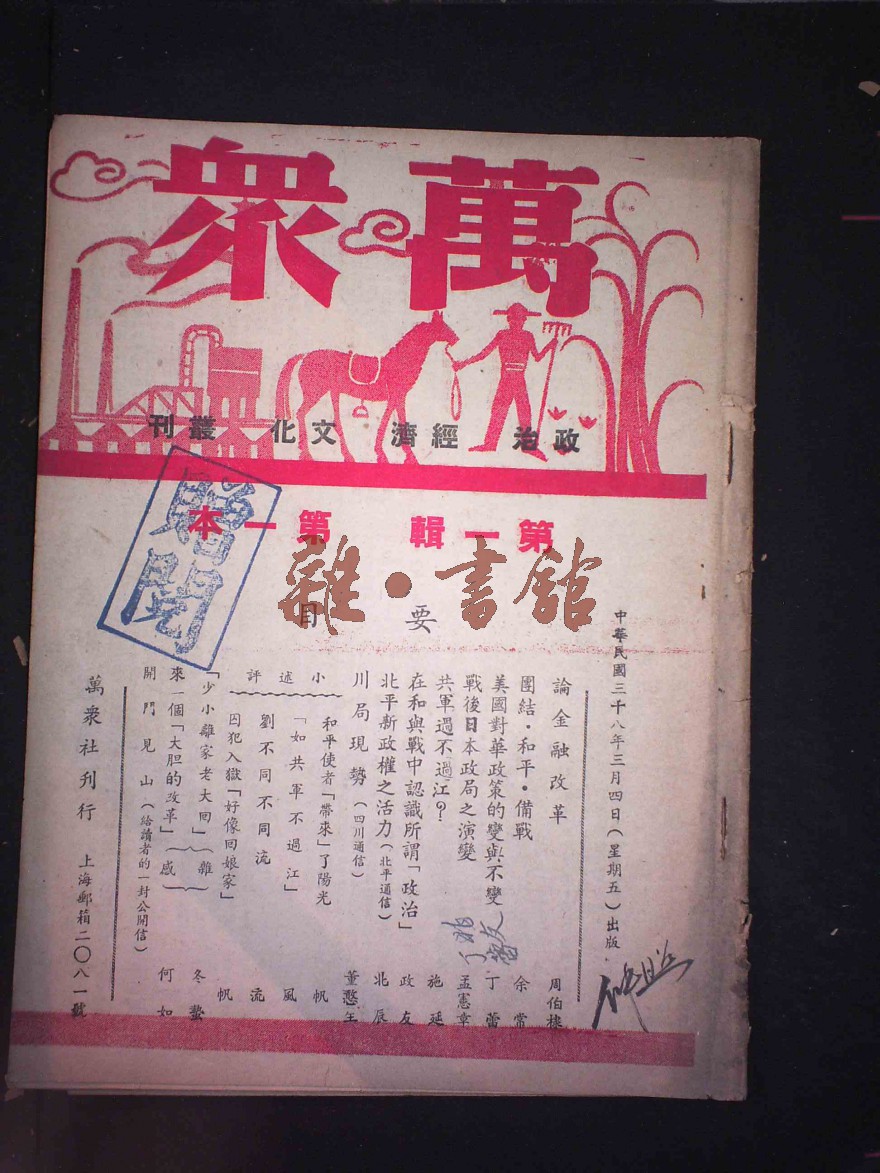 萬衆
政治 經濟 文化 叢刊
第一輯 第一本
贈閱
雜·書館
要目
中華民國三十八年三月四日(星期五)出版
論金融改革 周伯棣
團結·和平·備戰 余常
美國對華政策的變與不變 丁蕾
戰後日本政局之演變 孟憲章
共軍過不過江? 施延
在和與戰中認識所謂「政治」 政友
北平新政權之活力(北平通信) 北辰
川局現勢(四川通信) 董憨生
小述評
和平使者「帶來」了陽光 帆
「如共軍不過江」 風
劉不同不同流 流
囚犯入獄「好像回娘家」 帆
「少小離家老大回」(雜 冬蟄
來一個「大胆的改革」 感) 何如
開門見山(給讀者的一封公開信)
萬衆社刊行 上海郵箱二〇八一號